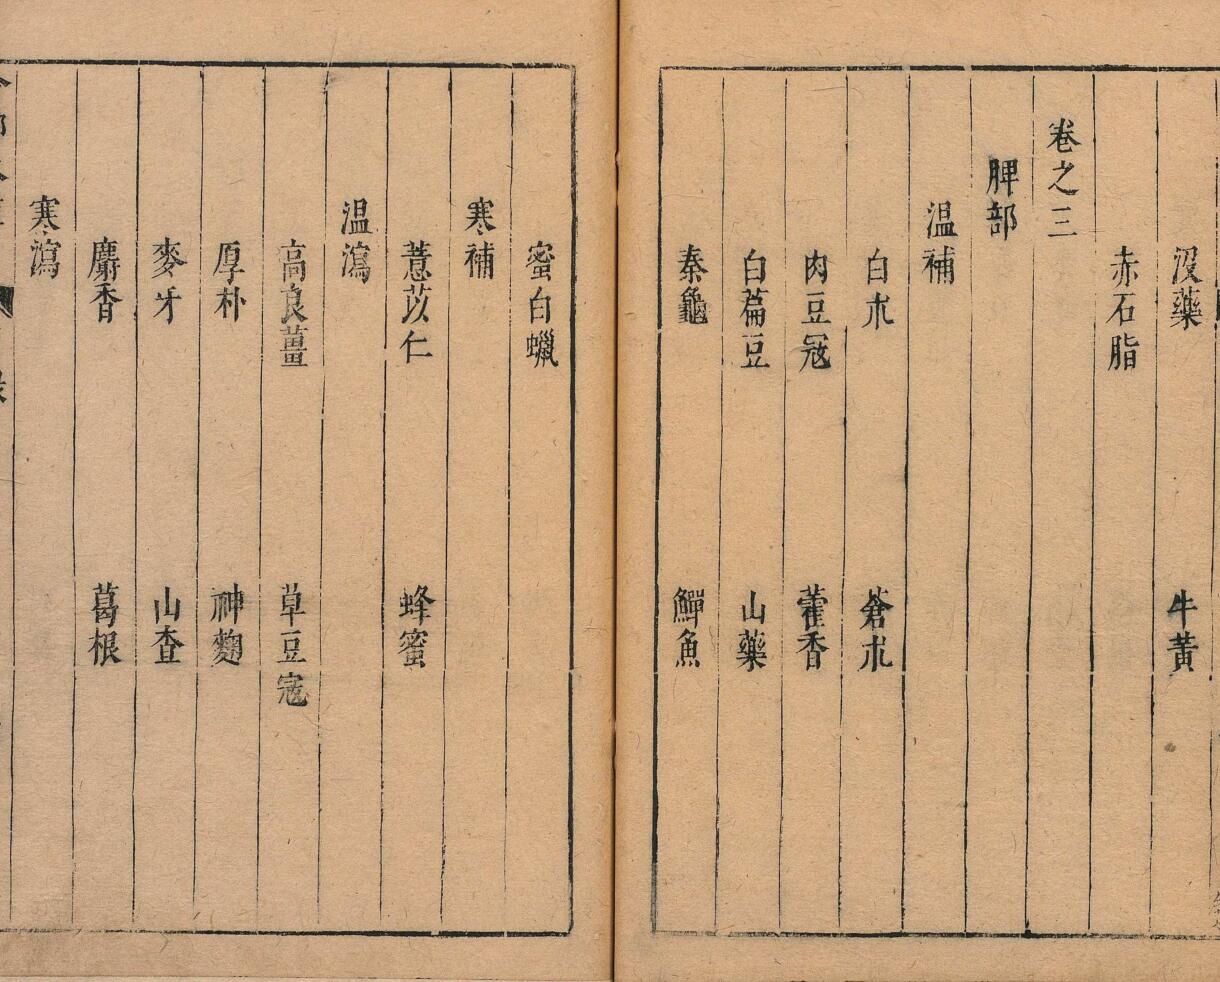 没藥　牛黃
赤石脂
卷之三
脾部
温補
白朮　蒼朮
肉豆冦　藿香
白萹豆　山藥
秦龜　鱓魚
蜜白蠟
寒補
薏苡仁　蜂蜜
温瀉
高良薑　草豆寇
厚朴　神麴
麥牙　山查
麝香　葛根
寒瀉